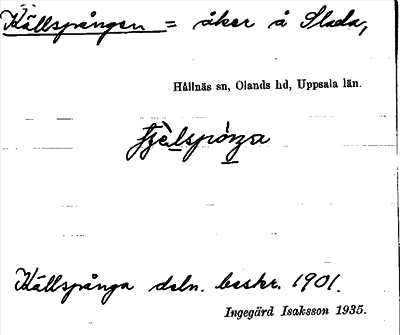 Källspången = åker å Slada,
Hållnäs sn, Olands hd, Uppsala län.
Källspånga doln. beskr. 1901.
Ingegärd Isaksson 1935.